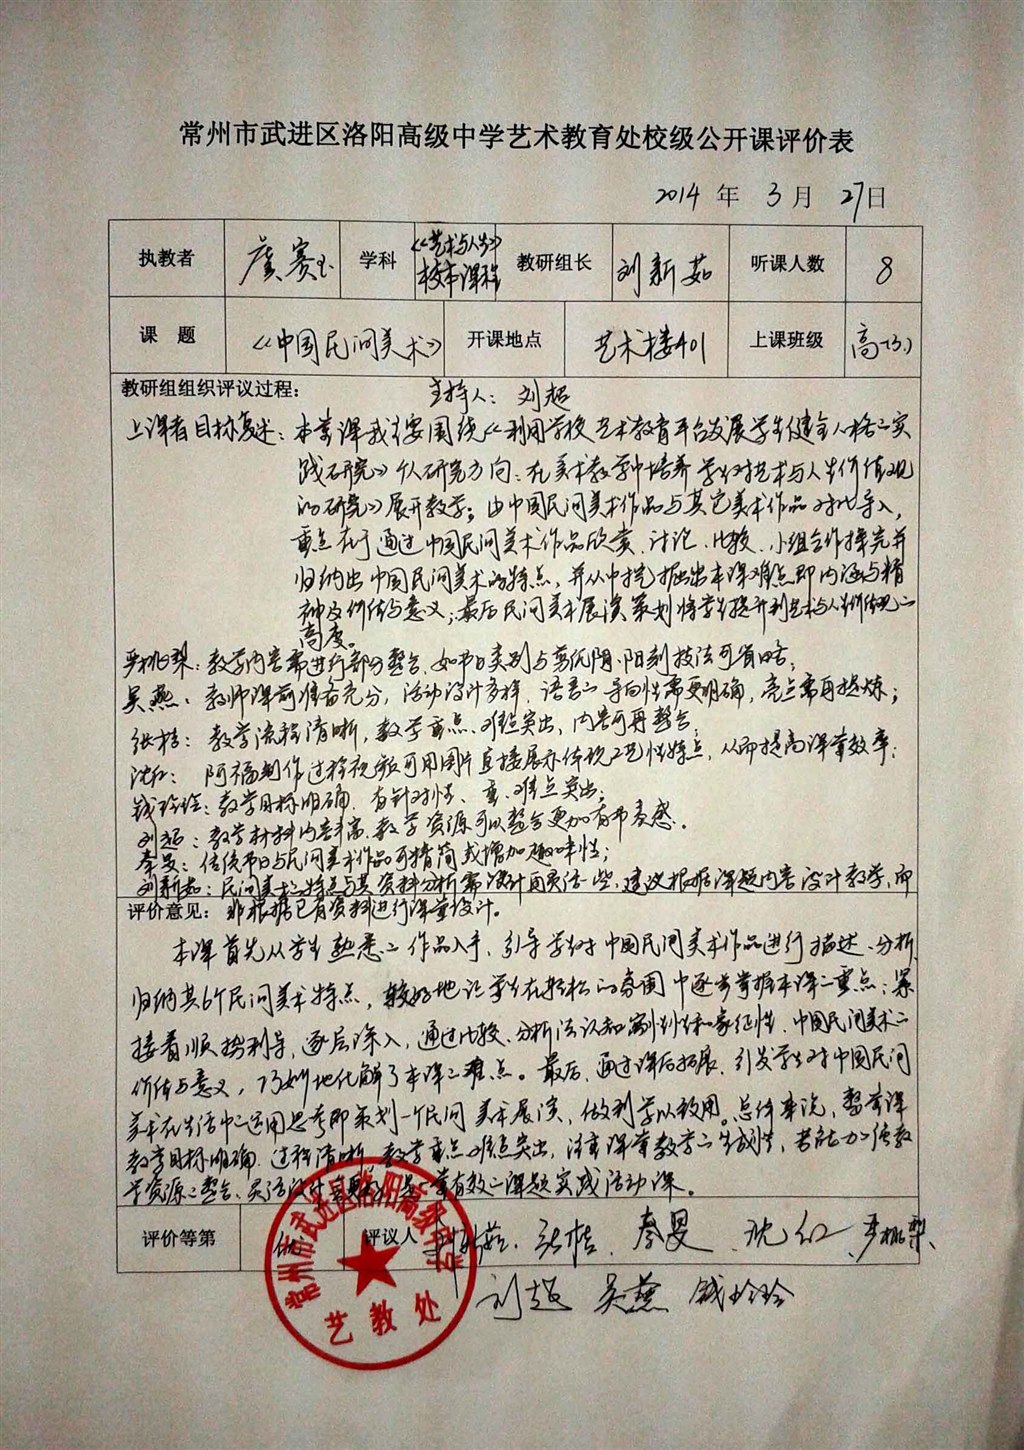 常州市武进区洛阳高级中学艺术教育处校级公开课评价表
2014 年 3 月 27日
执教者 虞赛玉 学科 《艺术与人生》校本课程 教研组长 刘新茹 听课人数 8
课 题 《中国民间美术》 开课地点 艺术楼401 上课班级 高一(3)
教研组组织评议过程： 主持人：刘超
上课者目标复述：本堂课我主要围绕《利用学校艺术教育平台发展学生健全人格之实
践研究》个人研究方向：在美术教学中培养学生对艺术与人生价值观
的研究》展开教学；由中国民间美术作品与其它美术作品对比导入，
重点在于通过中国民间美术作品欣赏、讨论、比较、小组合作探究并
归纳出中国民间美术的特点，并从中挖掘出本课难点即内涵与精
神及价值与意义；最后民间美术展演策划将学生提升到艺术与人生价值观之
高度。
严桃梨：教学内容需进行部分整合，如节日类别与剪纸阴、阳刻技法可省略；
吴燕：教师课前准备充分，活动设计多样，语言之导向性需更明确，亮点需再提炼；
张桔：教学流程清晰，教学重点、难点突出，内容可再整合；
沈红：阿福制作过程视频可用图片直接展示体现工艺性特点，从而提高课堂效率；
钱玲玲：教学目标明确、有针对性、重、难点突出；
刘超：教学材料内容丰富，教学资源可以整合更加有节奏感。
秦旻：传统节日与民间美术作品可精简或增加趣味性；
刘新茹：民间美术之特点与其资料分析需设计的灵活一些，建议根据课题内容设计教学，而
评价意见： 非根据已有资料进行课堂设计。
本课首先从学生熟悉之作品入手，引导学生对中国民间美术作品进行描述、分析、
归纳其6个民间美术特点，较好地让学生在轻松的氛围中逐步掌握本课之重点；紧
接着顺势利导，逐层深入，通过比较、分析法认知寓意性和象征性、中国民间美术之
价值与意义，巧妙地化解了本课之难点。最后，通过课后拓展，引发学生对中国民间
美术在生活中之运用思考即策划一个民间美术展演，做到学以致用。总体来说，整堂课
教学目标明确、过程清晰，教学重点难点突出，注重课堂教学之生成性，若能加之
学资源之整合、灵活设计 是一堂有效之课题实践活动课。
评价等第 优 评议人 刘新茹、张桔、秦旻、沈红、严桃梨、
刘超 吴燕 钱玲玲
常州市武进区洛阳高级中学
艺教处